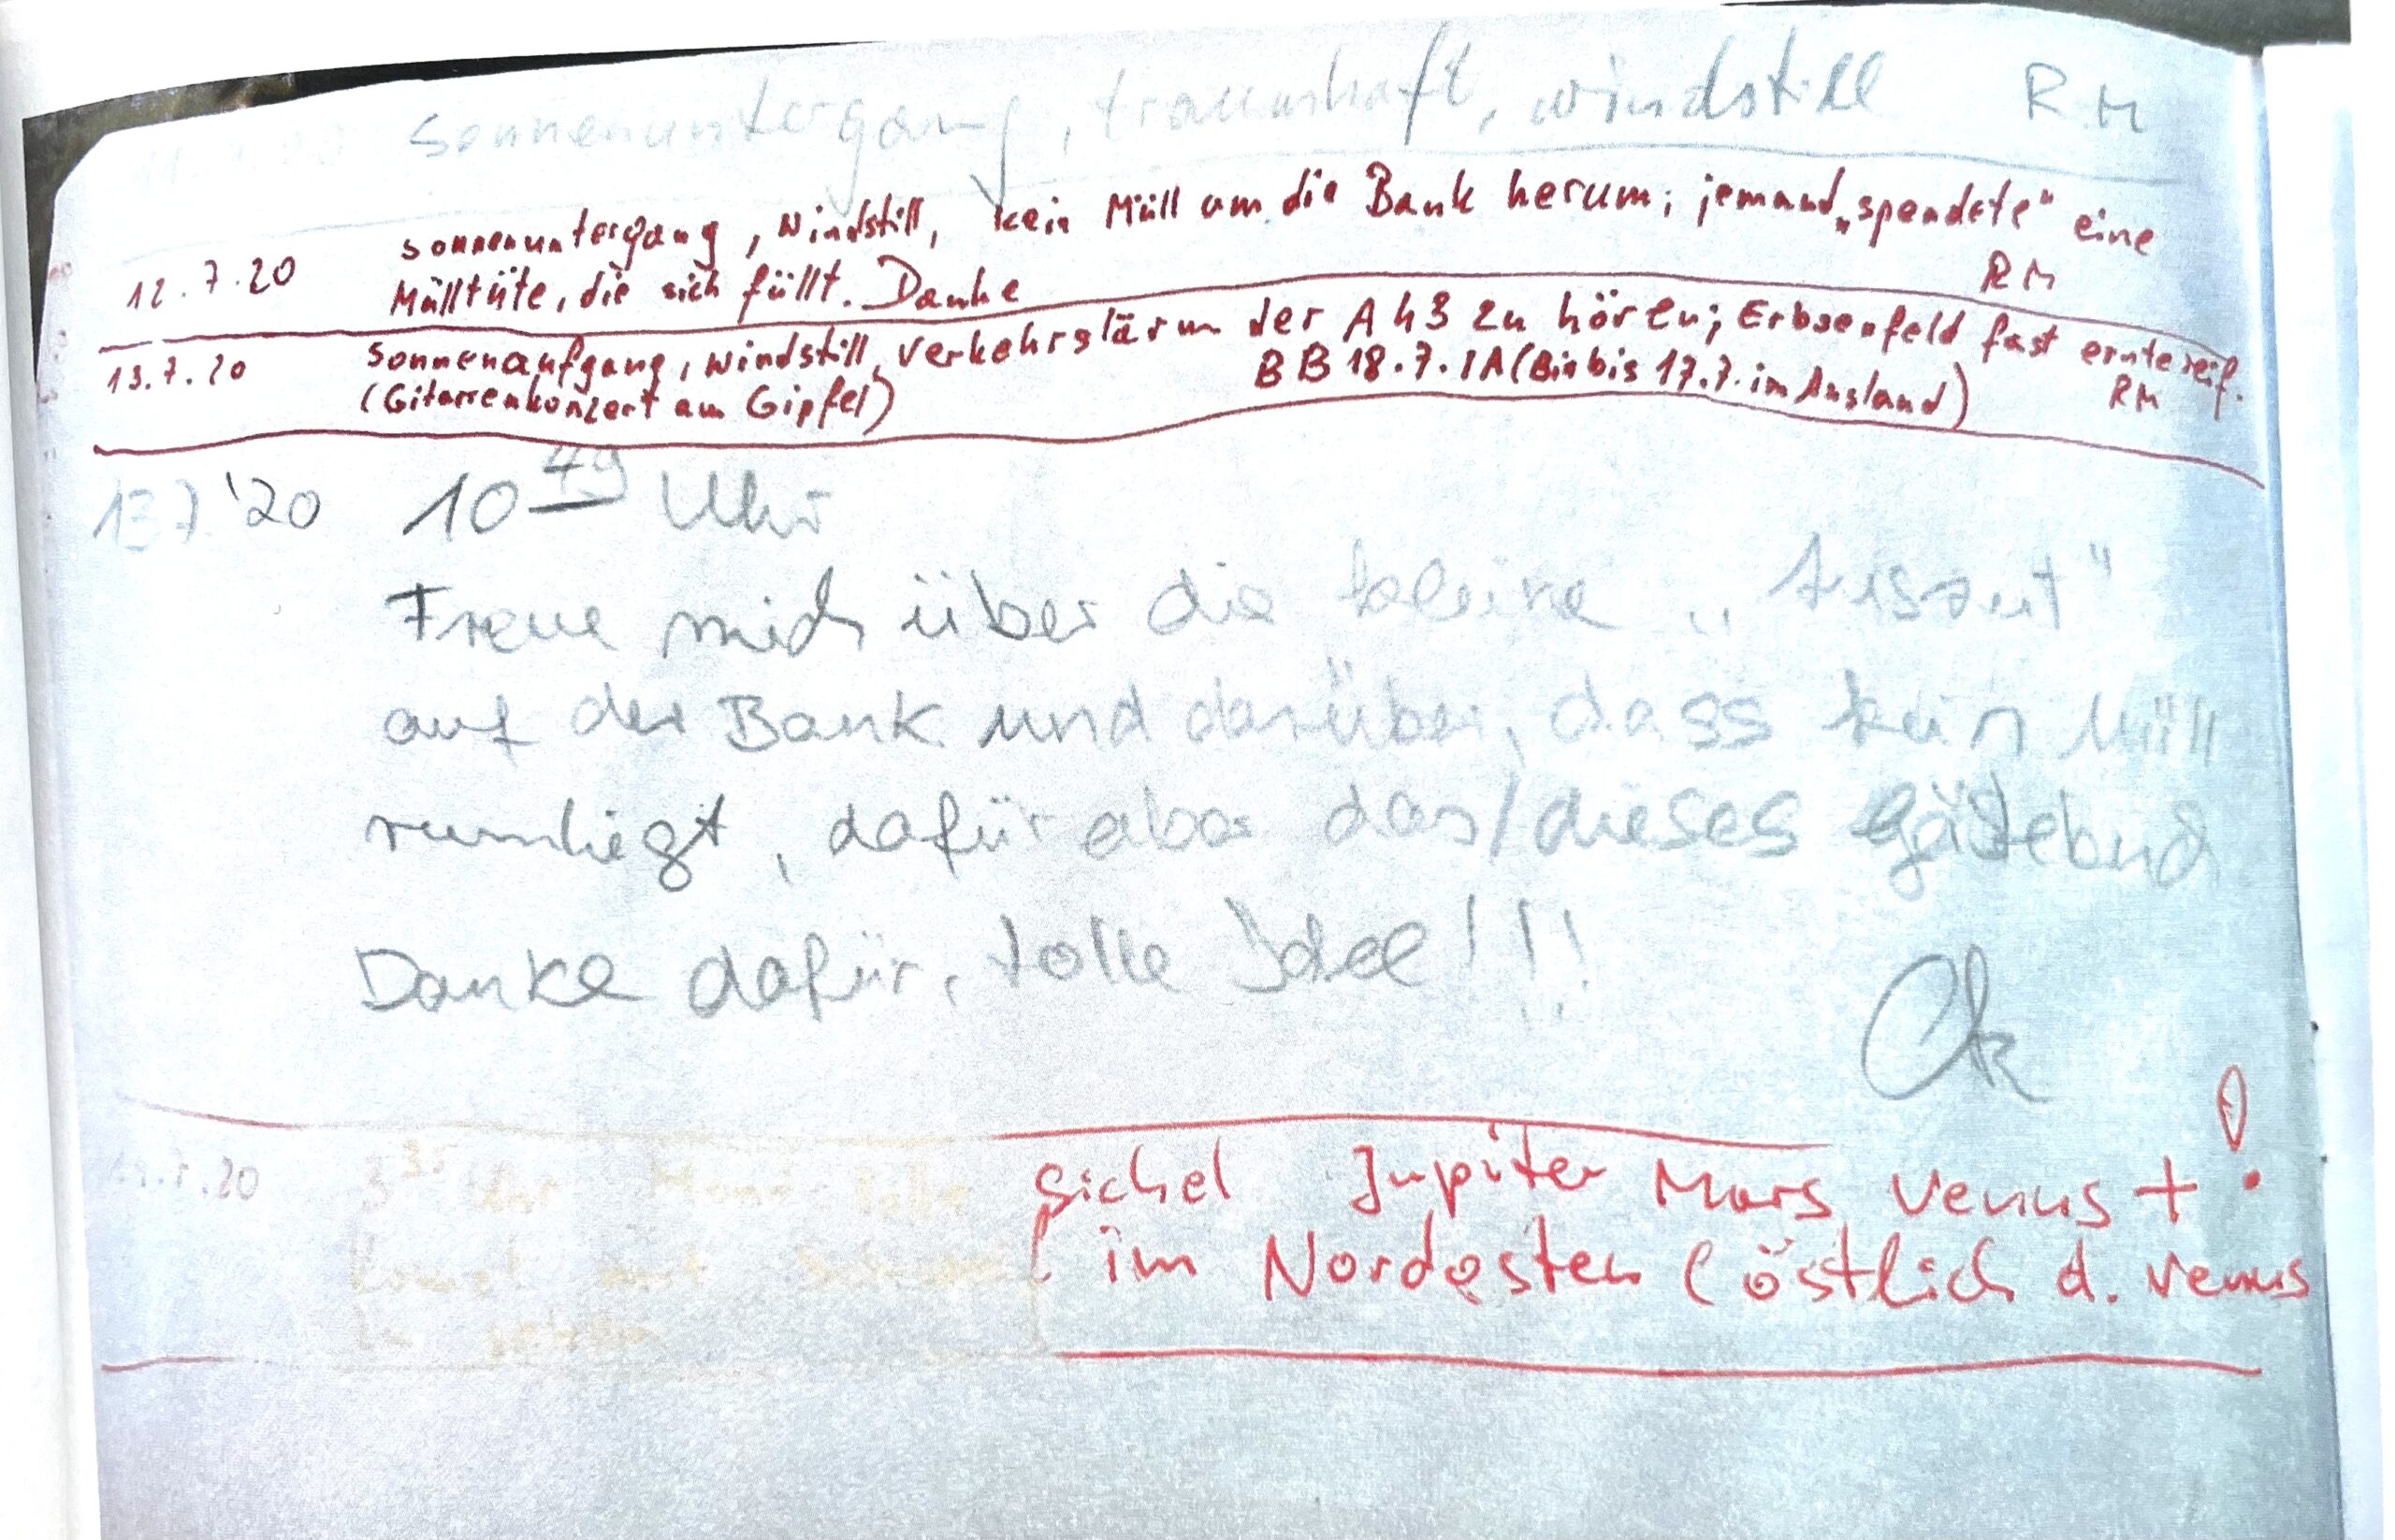 Sonnenuntergang, traumhaft, windstill RM
12.7.20 Sonnenuntergang, Windstill, kein Müll um die Bank herum; jemand „spendete" eine
Mülltüte, die sich füllt. Danke RM
13.7.20 Sonnenaufgang, windstill, Verkehrslärm der A43 zu hören; Erbsenfeld fast erntereif.
(Gitarrenkonzert am Gipfel) BB 18.7. IA (Bin bis 17.7. im Ausland) RM
13.7.'20 10 49 Uhr
Freue mich über die kleine „Auszeit"
auf der Bank und darüber, dass kein Müll
rumliegt, dafür aber das/dieses Gästebuch
Danke dafür, tolle Idee!!!
.20 3 35 Uhr Sichel Jupiter Mars Venus + !
Komet im Nordosten (östlich d. Venus